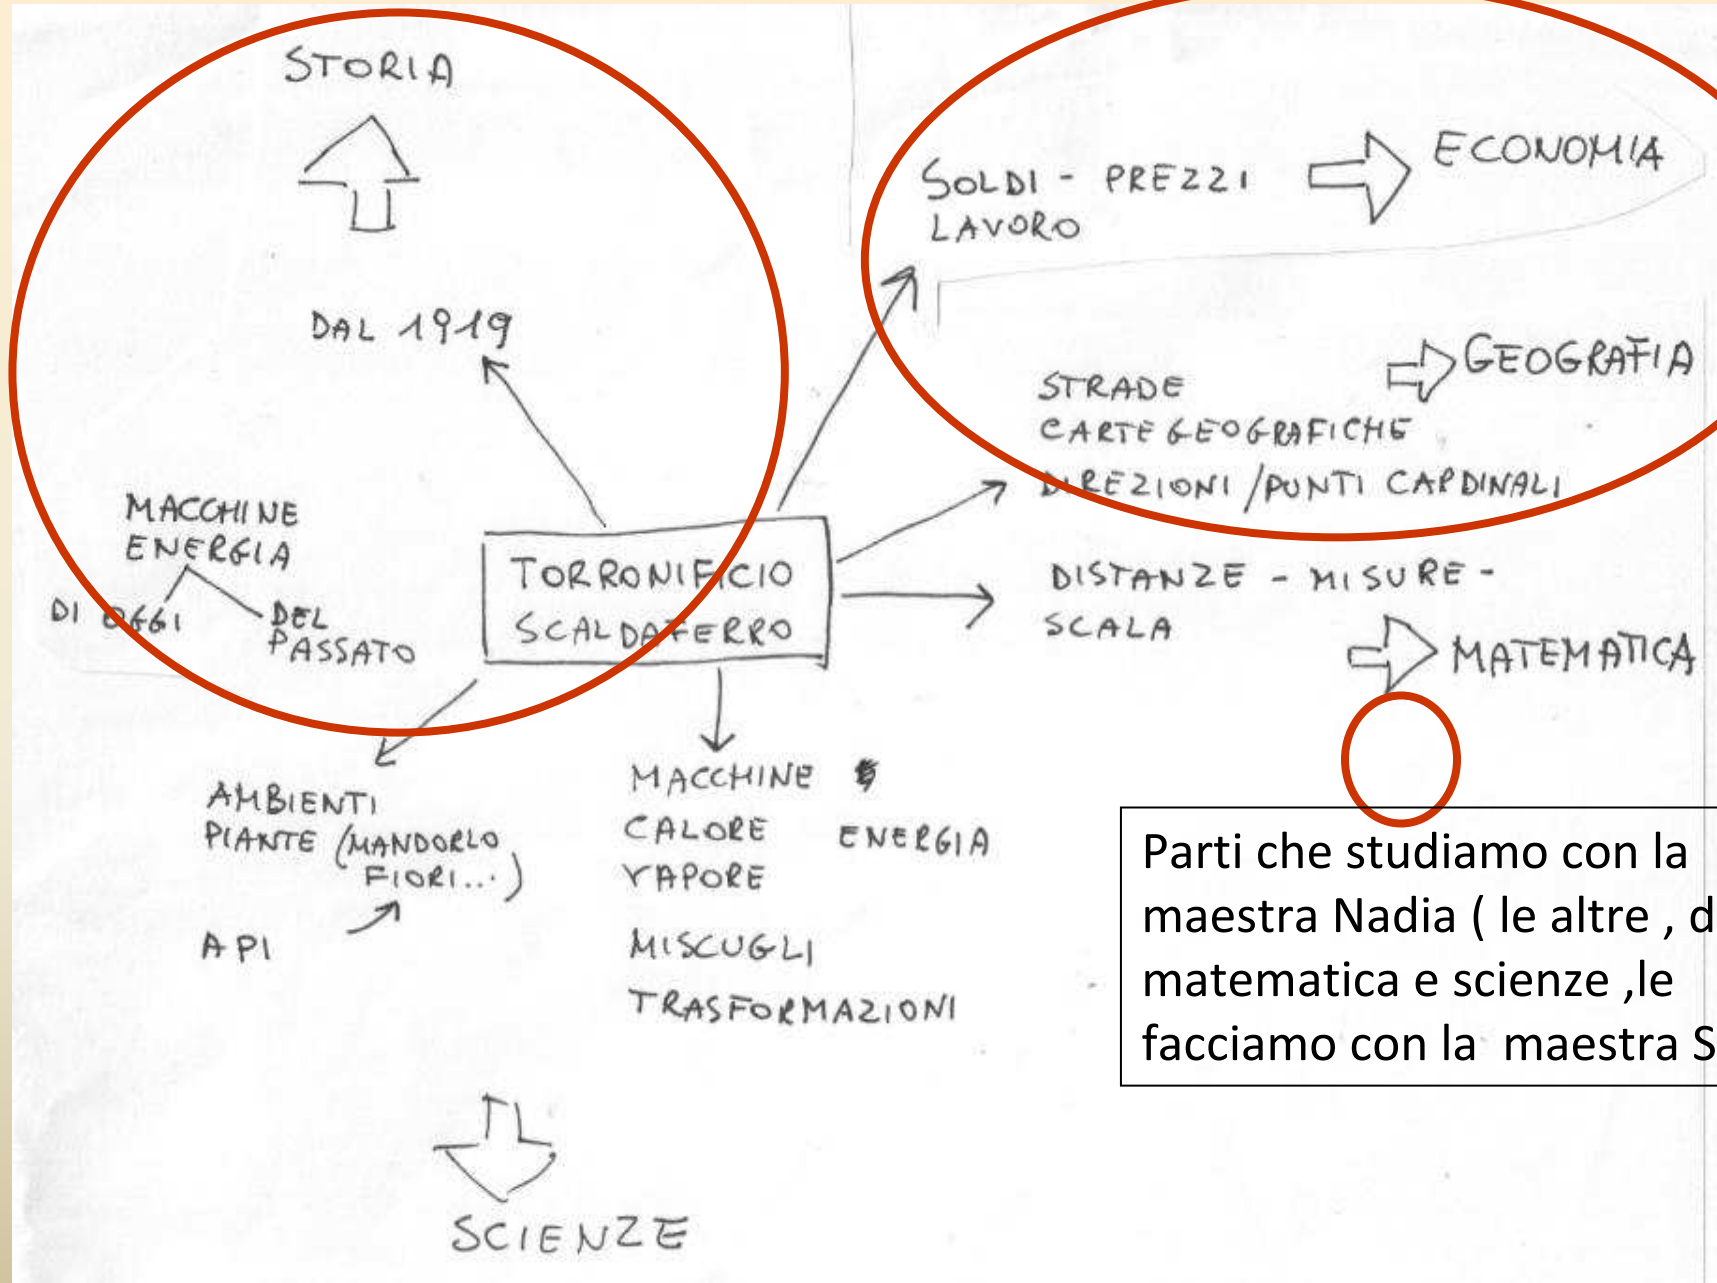 STORIA
DAL 1919
MACCHINE
ENERGIA
DI OGGI
DEL
PASSATO
SOLDI - PREZZI
LAVORO
ECONOMIA
GEOGRAFIA
STRADE
CARTE GEOGRAFICHE
DIREZIONI / PUNTI CARDINALI
TORRONIFICIO
SCALDAFERRO
DISTANZE - MISURE -
SCALA
MATEMATICA
AMBIENTI
PIANTE (MANDORLO
FIORI...)
API
MACCHINE
CALORE ENERGIA
VAPORE
MISCUGLI
TRASFORMAZIONI
SCIENZE
Parti che studiamo con la
maestra Nadia ( le altre , d
matematica e scienze ,le
facciamo con la maestra S